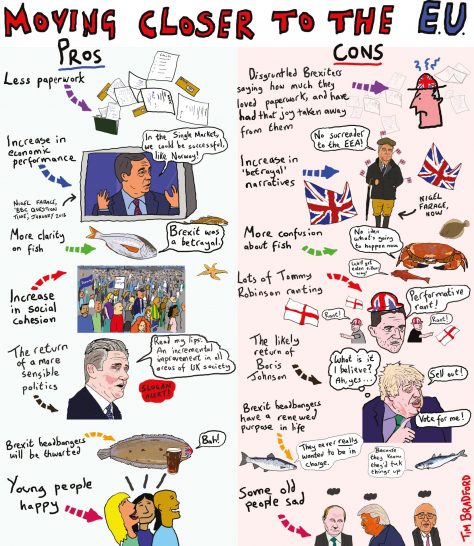 MOVING CLOSER TO THE E.U.
PROS
Less paperwork
Increase in
economic
performance
In the Single Market,
we could be successful,
like Norway!
NIGEL
FARAGE,
BBC QUESTION
TIME, JANUARY 2016
More clarity
on fish
Brexit
was a
betrayal!
Increase
in social
cohesion
The return
of a more
sensible
politics
Read my lips:
An incremental
improvement in all
areas of UK society
SLOGAN
ALERT!
Brexit headbangers
will be thwarted
Bah!
Young people
happy
CONS
Disgruntled Brexiters
saying how much they
loved paperwork, and have
had that joy taken away
from them
No surrender
to the EEA!
Increase in
'betrayal'
narratives
NIGEL
FARAGE,
NOW
More confusion
about fish
No idea
what's going
to happen now
We'll get
eaten either
way!
Lots of Tommy
Robinson ranting
Performative
rant!
Rant!
Rant!
The likely
return of
Boris
Johnson
What is it
I believe?
Ah, yes...
Sell out!
Vote for me!
Brexit headbangers
have a renewed
purpose in life
They never really
wanted to be in
charge.
Because
they knew
they'd fuck
things up
Some old
people sad
TIM BRADFORD